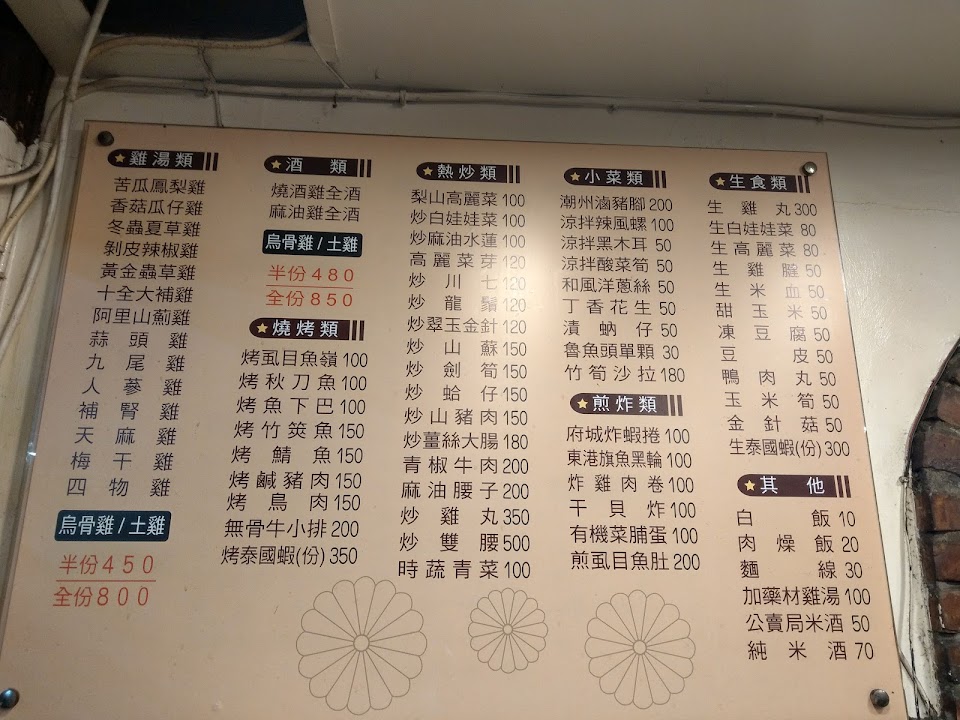 雞湯類
苦瓜鳳梨雞
香菇瓜仔雞
冬蟲夏草雞
剝皮辣椒雞
黃金蟲草雞
十全大補雞
阿里山薊雞
蒜頭雞
九尾雞
人蔘雞
補腎雞
天麻雞
梅干雞
四物雞
烏骨雞/土雞
半份450
全份800
酒類
燒酒雞全酒
麻油雞全酒
烏骨雞/土雞
半份480
全份850
燒烤類
烤虱目魚嶺100
烤秋刀魚100
烤魚下巴100
烤竹筴魚150
烤鯖魚150
烤鹹豬肉150
烤鳥肉150
無骨牛小排200
烤泰國蝦(份)350
熱炒類
梨山高麗菜100
炒白娃娃菜100
炒麻油水蓮100
高麗菜芽120
炒川七120
炒龍鬚120
炒翠玉金針120
炒山蘇150
炒劍筍150
炒蛤仔150
炒山豬肉150
炒薑絲大腸180
青椒牛肉200
麻油腰子200
炒雞丸350
炒雙腰500
時蔬青菜100
小菜類
潮州滷豬腳200
涼拌辣風螺100
涼拌黑木耳50
涼拌酸菜筍50
和風洋蔥絲50
丁香花生50
漬蚋仔50
魯魚頭單顆30
竹筍沙拉180
煎炸類
府城炸蝦捲100
東港旗魚黑輪100
炸雞肉卷100
干貝炸100
有機菜脯蛋100
煎虱目魚肚200
生食類
生雞丸300
生白娃娃菜80
生高麗菜80
生雞腟50
生米血50
甜玉米50
凍豆腐50
豆皮50
鴨肉丸50
玉米筍50
金針菇50
生泰國蝦(份)300
其他
白飯10
肉燥飯20
麵線30
加藥材雞湯100
公賣局米酒50
純米酒70